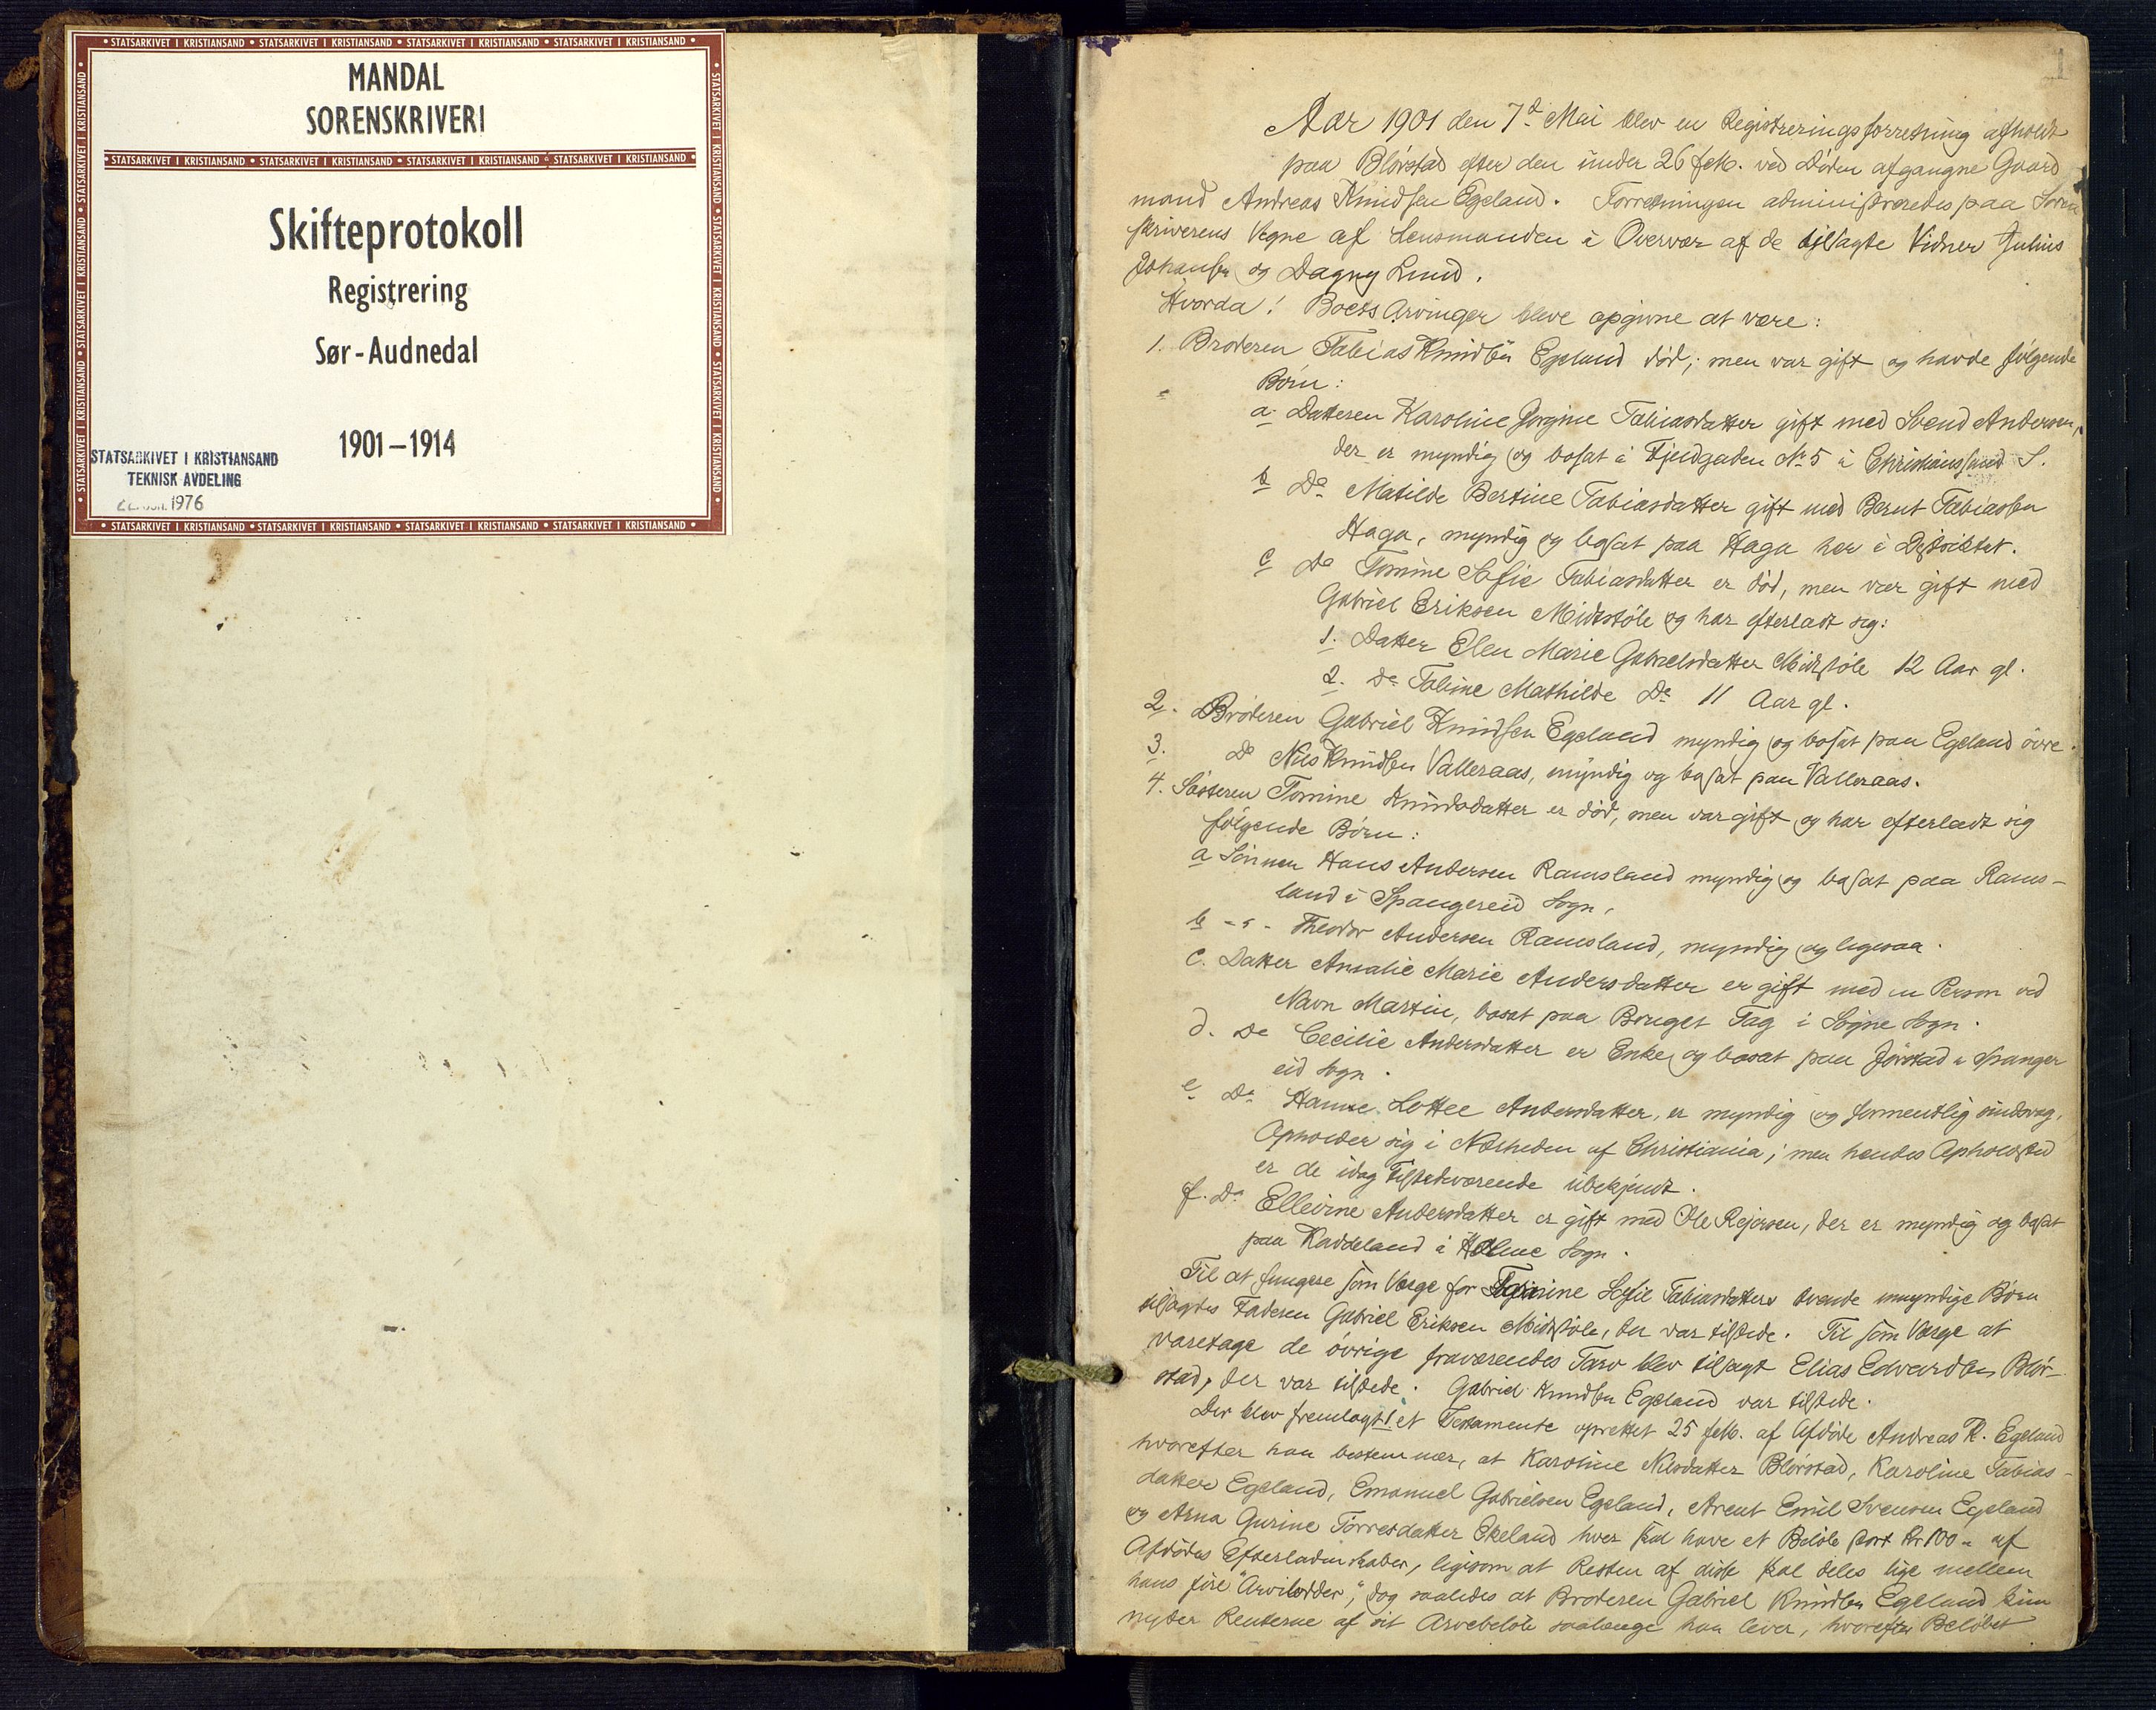 • STATSARKIVET I KRISTIANSAND • STATSARKIVET I KRISTIANSAND • STATSARKIVET I KRISTIANSAND • STATSARKIVET I KRISTIANSAND •
MANDAL
SORENSKRIVERI
• STATSARKIVET I KRISTIANSAND • STATSARKIVET I KRISTIANSAND • STATSARKIVET I KRISTIANSAND • STATSARKIVET I KRISTIANSAND •
Skifteprotokoll
Registrering
Sør-Audnedal
1901–1914
STATSARKIVET I KRISTIANSAND
TEKNISK AVDELING
1976
• STATSARKIVET I KRISTIANSAND • STATSARKIVET I KRISTIANSAND • STATSARKIVET I KRISTIANSAND • STATSARKIVET I KRISTIANSAND •
1
Aar 1901 den 7d Mai blev en Registreringsforretning afholdt
paa Blørstad efter den under 26 febr. ved Døden afgangne Gaard
mand Andreas Knudsen Egeland. Forretningen administreredes paa Soren
skriverens Vegne af Lensmanden i Overvær af de tilsagte Vidner Julius
Johansen og Dagny Lund.
Hvorda! Boets Arvinger bleve opgivne at være:
1. Broderen Tobias Knudsen Egeland død; men var gift og havde følgende
Børn:
a. Datteren Karoline Jorgine Tobiasdatter gift med Svend Andersen,
der er myndig og bosat i Fjeldgaden No 5 i Christianssand S.
b Do Matilde Bertine Tobiasdatter gift med Bernt Tobiassen
Haga, myndig og bosat paa Haga her i Distriktet.
c Do Tomine Sofie Tobiasdatter er død, men var gift med
Gabriel Eriksen Midtstøle og har efterladt sig:
1. Datter Elen Marie Gabrielsdatter Midtstøle 12 Aar gl.
2. Do Tobine Mathilde Do 11 Aar gl.
2. Broderen Gabriel Knudsen Egeland myndig og bosat paa Egeland øvre.
3. Do Nils Knudsen Valleraas, myndig og bosat paa Valleraas.
4. Søsteren Tomine Knudsdatter er død, men var gift og har efterladt sig
følgende Børn:
a Sønnen Hans Andersen Ramsland myndig og bosat paa Rams-
land i Spangereid Sogn,
b -"- Theodor Andersen Ramsland, myndig og ligesaa.
c. Datter Amalie Marie Andersdatter er gift med en Person ved
Navn Martin, bosat paa Bruget Tag i Søgne Sogn.
d. Do Cecilie Andersdatter er Enke og bosat paa Jørstad i Spanger
eid Sogn.
e Do Hanne Lottee Andersdatter, er myndig og formentlig
Opholder sig i Nærheden af Christiania; men hendes Opholdsted
er de idag tilstedeværende ubekjendt.
f. Do Ellevine Andersdatter er gift med Ole Rejersen, der er myndig og bosat
paa Kaddeland i Holme Sogn.
Til at fungere som Værge for Tomine Sofie Tobiasdatters tvende umyndige Børn
tilsagdes Faderen Gabriel Eriksen Midtstøle, der var tilstede. Til som Værge at
varetage de øvrige fraværendes Tarv blev tilsagt Elias Edvardsen Blør-
stad, der var tilstede. Gabriel Knudsen Egeland var tilstede.
Der blev fremlagt 1 et Testamente oprettet 25 febr. af Afdøde Andreas K. Egeland
hvorefter han bestemmer, at Karoline Nilsdatter Blørstad, Karoline Tobias-
datter Egeland, Emanuel Gabrielsen Egeland, Arent Emil Svensen Egeland
og Arna Gurine Tørresdatter Ekeland hver skal have et Beløb stort Kr 100 " af
Afdødes Efterladenskaber, ligesom at Resten af disse skal deles lige mellem
hans fire "Arvilodder," dog saaledes at Broderen Gabriel Knudsen Egeland kun
nyder Renterne af sit Arvebeløb saalænge han lever, hvorefter Beløbet